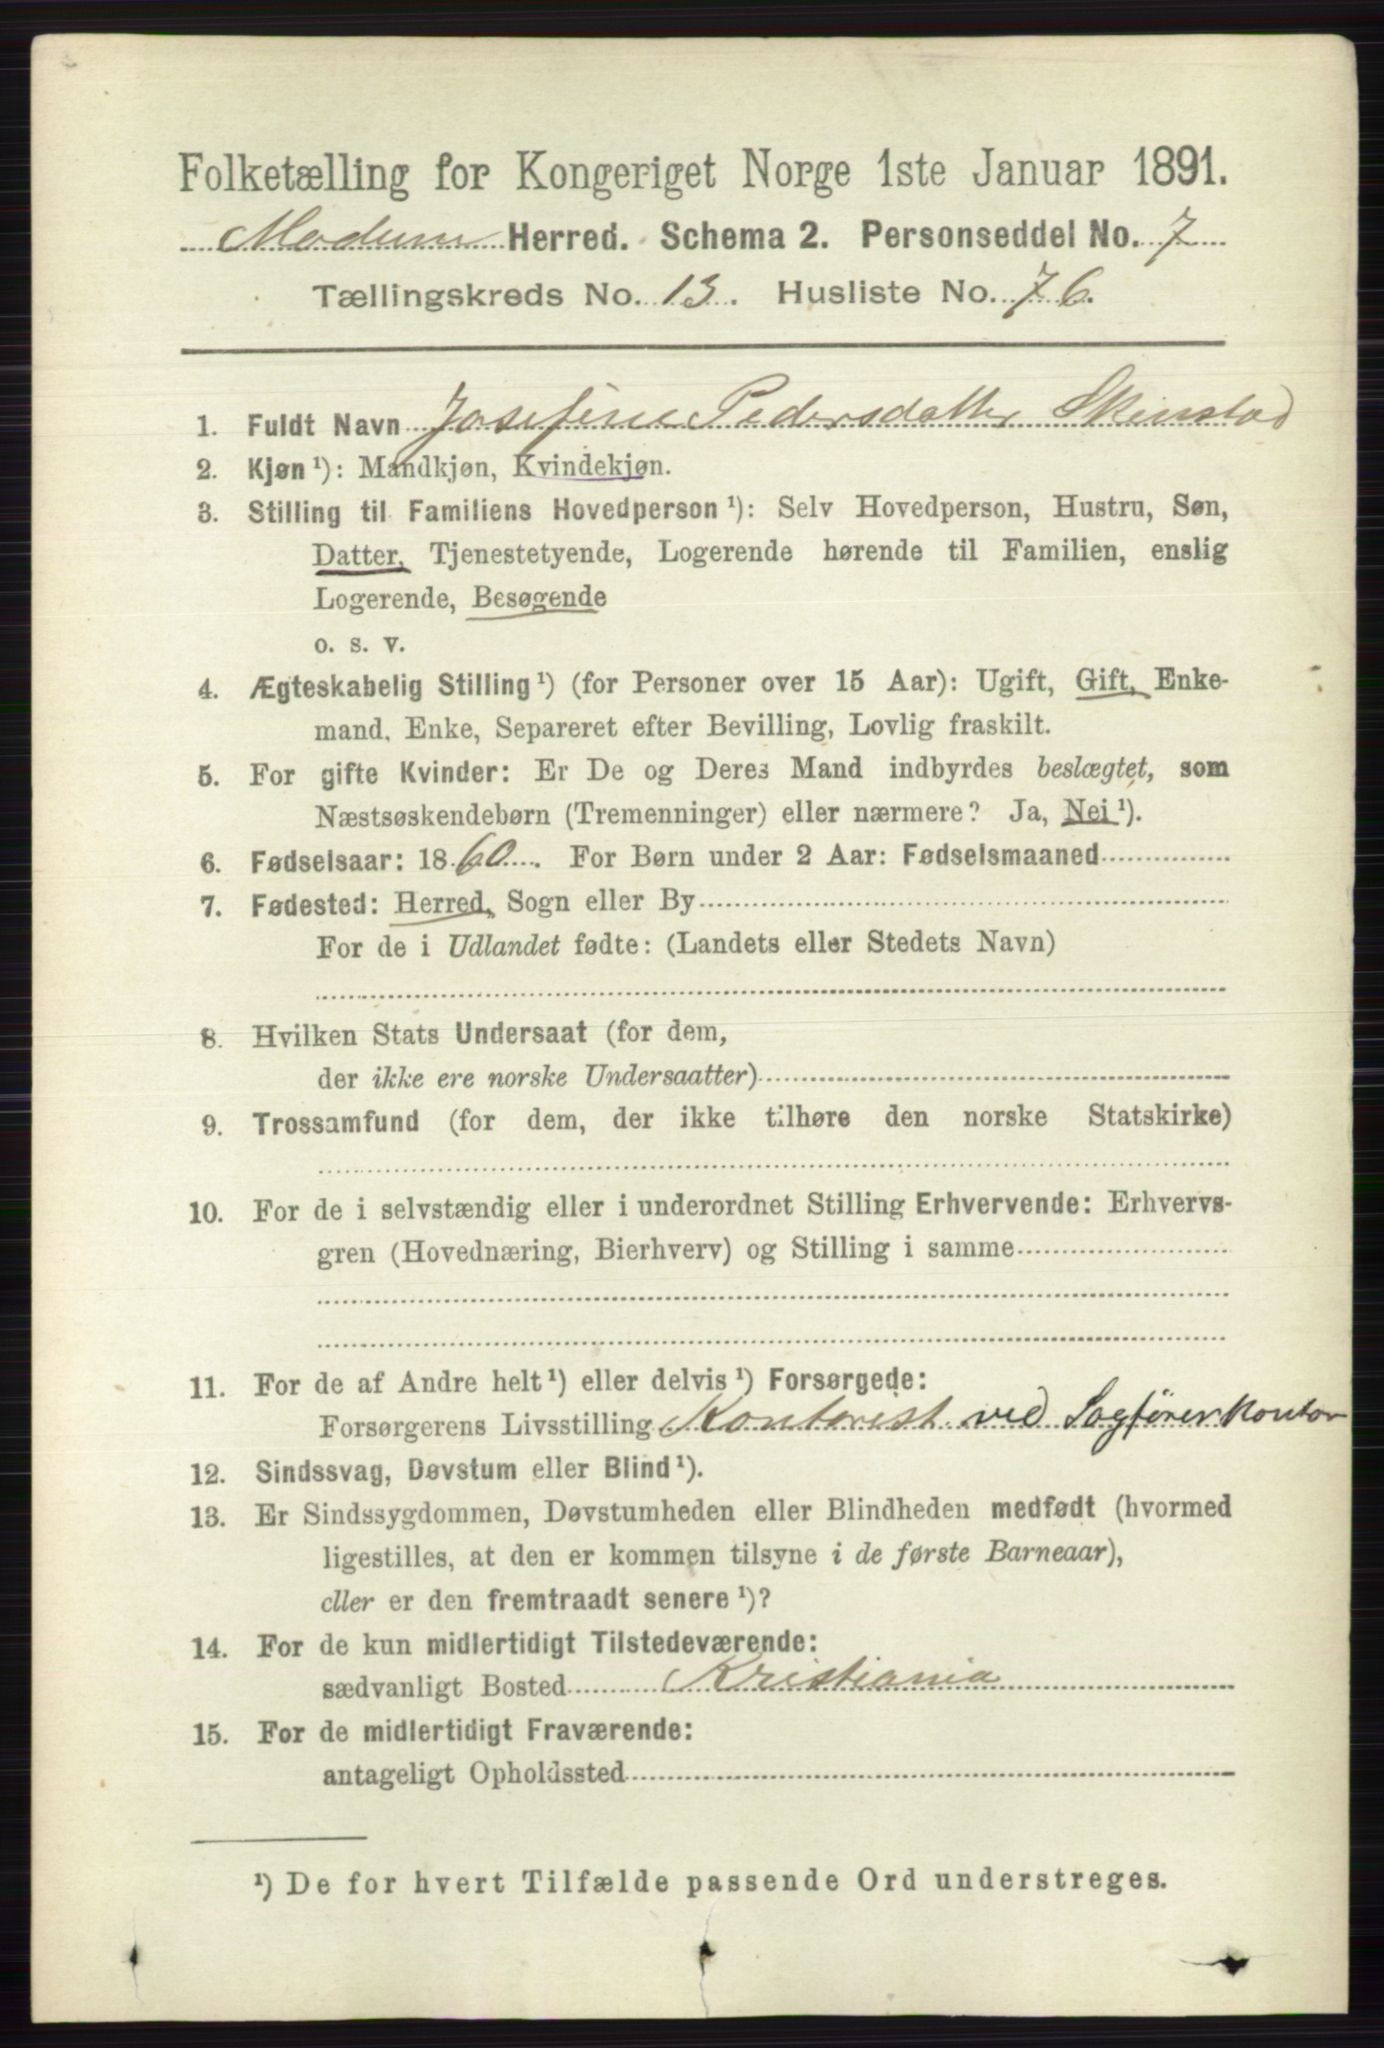 Folketælling for Kongeriget Norge 1ste Januar 1891.
Modum Herred. Schema 2. Personseddel No. 7
Tællingskreds No. 13. Husliste No. 76.
1. Fuldt Navn Josefine Pedersdatter Skinstad
2. Kjøn ¹): Mandkjøn, Kvindekjøn.
3. Stilling til Familiens Hovedperson ¹): Selv Hovedperson, Hustru, Søn,
Datter, Tjenestetyende, Logerende hørende til Familien, enslig
Logerende, Besøgende
o. s. v.
4. Ægteskabelig Stilling ¹) (for Personer over 15 Aar): Ugift, Gift, Enke-
mand, Enke, Separeret efter Bevilling, Lovlig fraskilt.
5. For gifte Kvinder: Er De og Deres Mand indbyrdes beslægtet, som
Næstsøskendebørn (Tremenninger) eller nærmere? Ja, Nei ¹).
6. Fødselsaar: 1860. For Børn under 2 Aar: Fødselsmaaned
7. Fødested: Herred, Sogn eller By
For de i Udlandet fødte: (Landets eller Stedets Navn)
8. Hvilken Stats Undersaat (for dem,
der ikke ere norske Undersaatter)
9. Trossamfund (for dem, der ikke tilhøre den norske Statskirke)
10. For de i selvstændig eller i underordnet Stilling Erhvervende: Erhvervs-
gren (Hovednæring, Bierhverv) og Stilling i samme
11. For de af Andre helt ¹) eller delvis ¹) Forsørgede:
Forsørgerens Livsstilling Kontorist ved Sagførerkontor
12. Sindssvag, Døvstum eller Blind ¹).
13. Er Sindssygdommen, Døvstumheden eller Blindheden medfødt (hvormed
ligestilles, at den er kommen tilsyne i de første Barneaar),
eller er den fremtraadt senere ¹)?
14. For de kun midlertidigt Tilstedeværende:
sædvanligt Bosted Kristiania
15. For de midlertidigt Fraværende:
antageligt Opholdssted
¹) De for hvert Tilfælde passende Ord understreges.